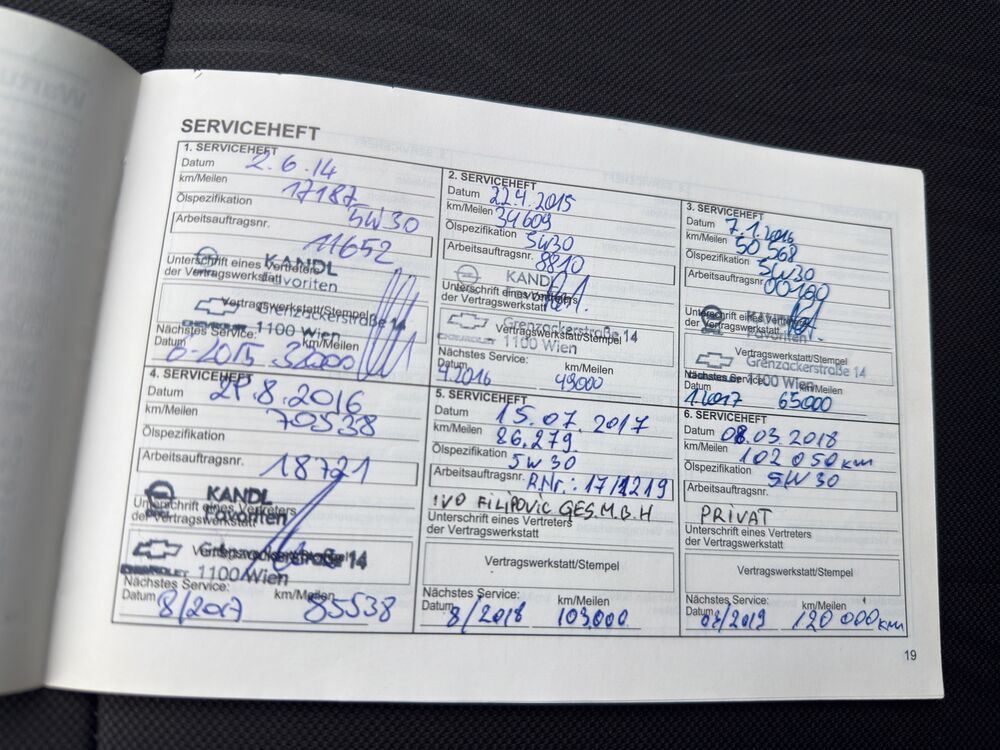 SERVICEHEFT
1. SERVICEHEFT
Datum 2.6.14
km/Meilen 17187
Ölspezifikation 5W30
Arbeitsauftragsnr. 11652
KANDL
Favoriten
Unterschrift eines Vertreters
der Vertragswerkstatt
Vertragswerkstatt/Stempel
Grenzackerstraße 14
CHEVROLET 1100 Wien
Nächstes Service:
Datum 6-2015 km/Meilen 32000
2. SERVICEHEFT
Datum 22.4.2015
km/Meilen 34609
Ölspezifikation 5W30
Arbeitsauftragsnr. 8810
KANDL
Favoriten
Unterschrift eines Vertreters
der Vertragswerkstatt
Grenzackerstraße 14
Vertragswerkstatt/Stempel
CHEVROLET 1100 Wien
Nächstes Service:
Datum 4.2016 km/Meilen 49000
3. SERVICEHEFT
Datum 7.1.2016
km/Meilen 50568
Ölspezifikation 5W30
Arbeitsauftragsnr. 00160
KANDL
Unterschrift eines Vertreters
der Vertragswerkstatt
Favoriten
Vertragswerkstatt/Stempel
Grenzackerstraße 14
1100 Wien
Nächstes Service:
Datum 1.2017 km/Meilen 65000
4. SERVICEHEFT
Datum 29.8.2016
km/Meilen 70538
Ölspezifikation
Arbeitsauftragsnr. 18721
KANDL
Favoriten
OPEL
Unterschrift eines Vertreters
der Vertragswerkstatt
Vertragswerkstatt/Stempel
Grenzackerstraße 14
CHEVROLET 1100 Wien
Nächstes Service:
Datum 8/2017 km/Meilen 85538
5. SERVICEHEFT
Datum 15.07.2017
km/Meilen 86.279
Ölspezifikation 5W30
Arbeitsauftragsnr. R.Nr.: 17/1219
IVO FILIPOVIC GES.M.B.H
Unterschrift eines Vertreters
der Vertragswerkstatt
Vertragswerkstatt/Stempel
Nächstes Service:
Datum 8/2018 km/Meilen 103.000
6. SERVICEHEFT
Datum 08.03.2018
km/Meilen 102 050 km
Ölspezifikation 5W30
Arbeitsauftragsnr.
PRIVAT
Unterschrift eines Vertreters
der Vertragswerkstatt
Vertragswerkstatt/Stempel
Nächstes Service:
Datum 03/2019 km/Meilen 120 000 km
19